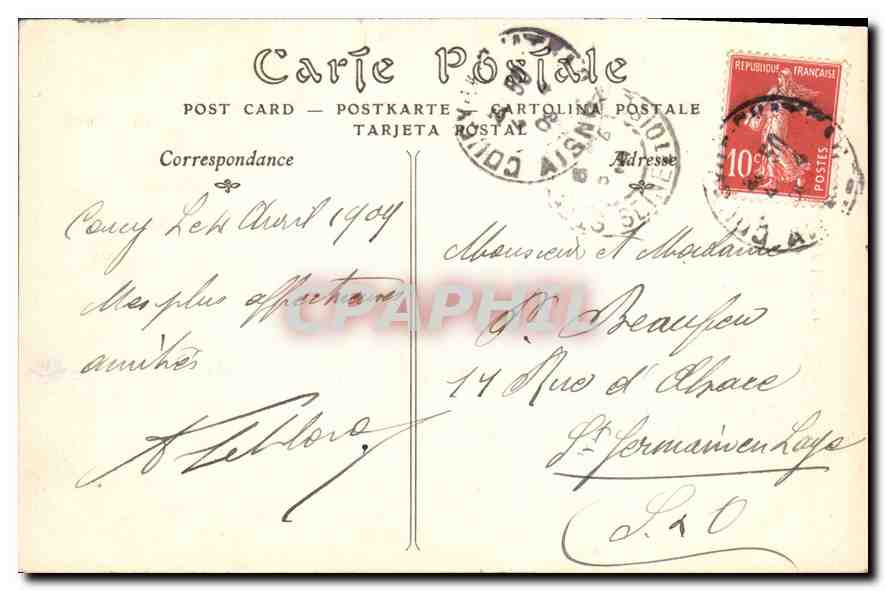 Carte Postale
POST CARD — POSTKARTE — CARTOLINA POSTALE
TARJETA POSTAL
Correspondance
Coucy Le 4 Avril 1909
Mes plus affectueuses
amitiés
Adresse
Monsieur et Madame
Beaufieu
17 Rue d'Alsace
St Germain en Laye
S. & O
REPUBLIQUE FRANÇAISE
10c
POSTES
COUCY
AISNE
SEINE
CPAPHIL